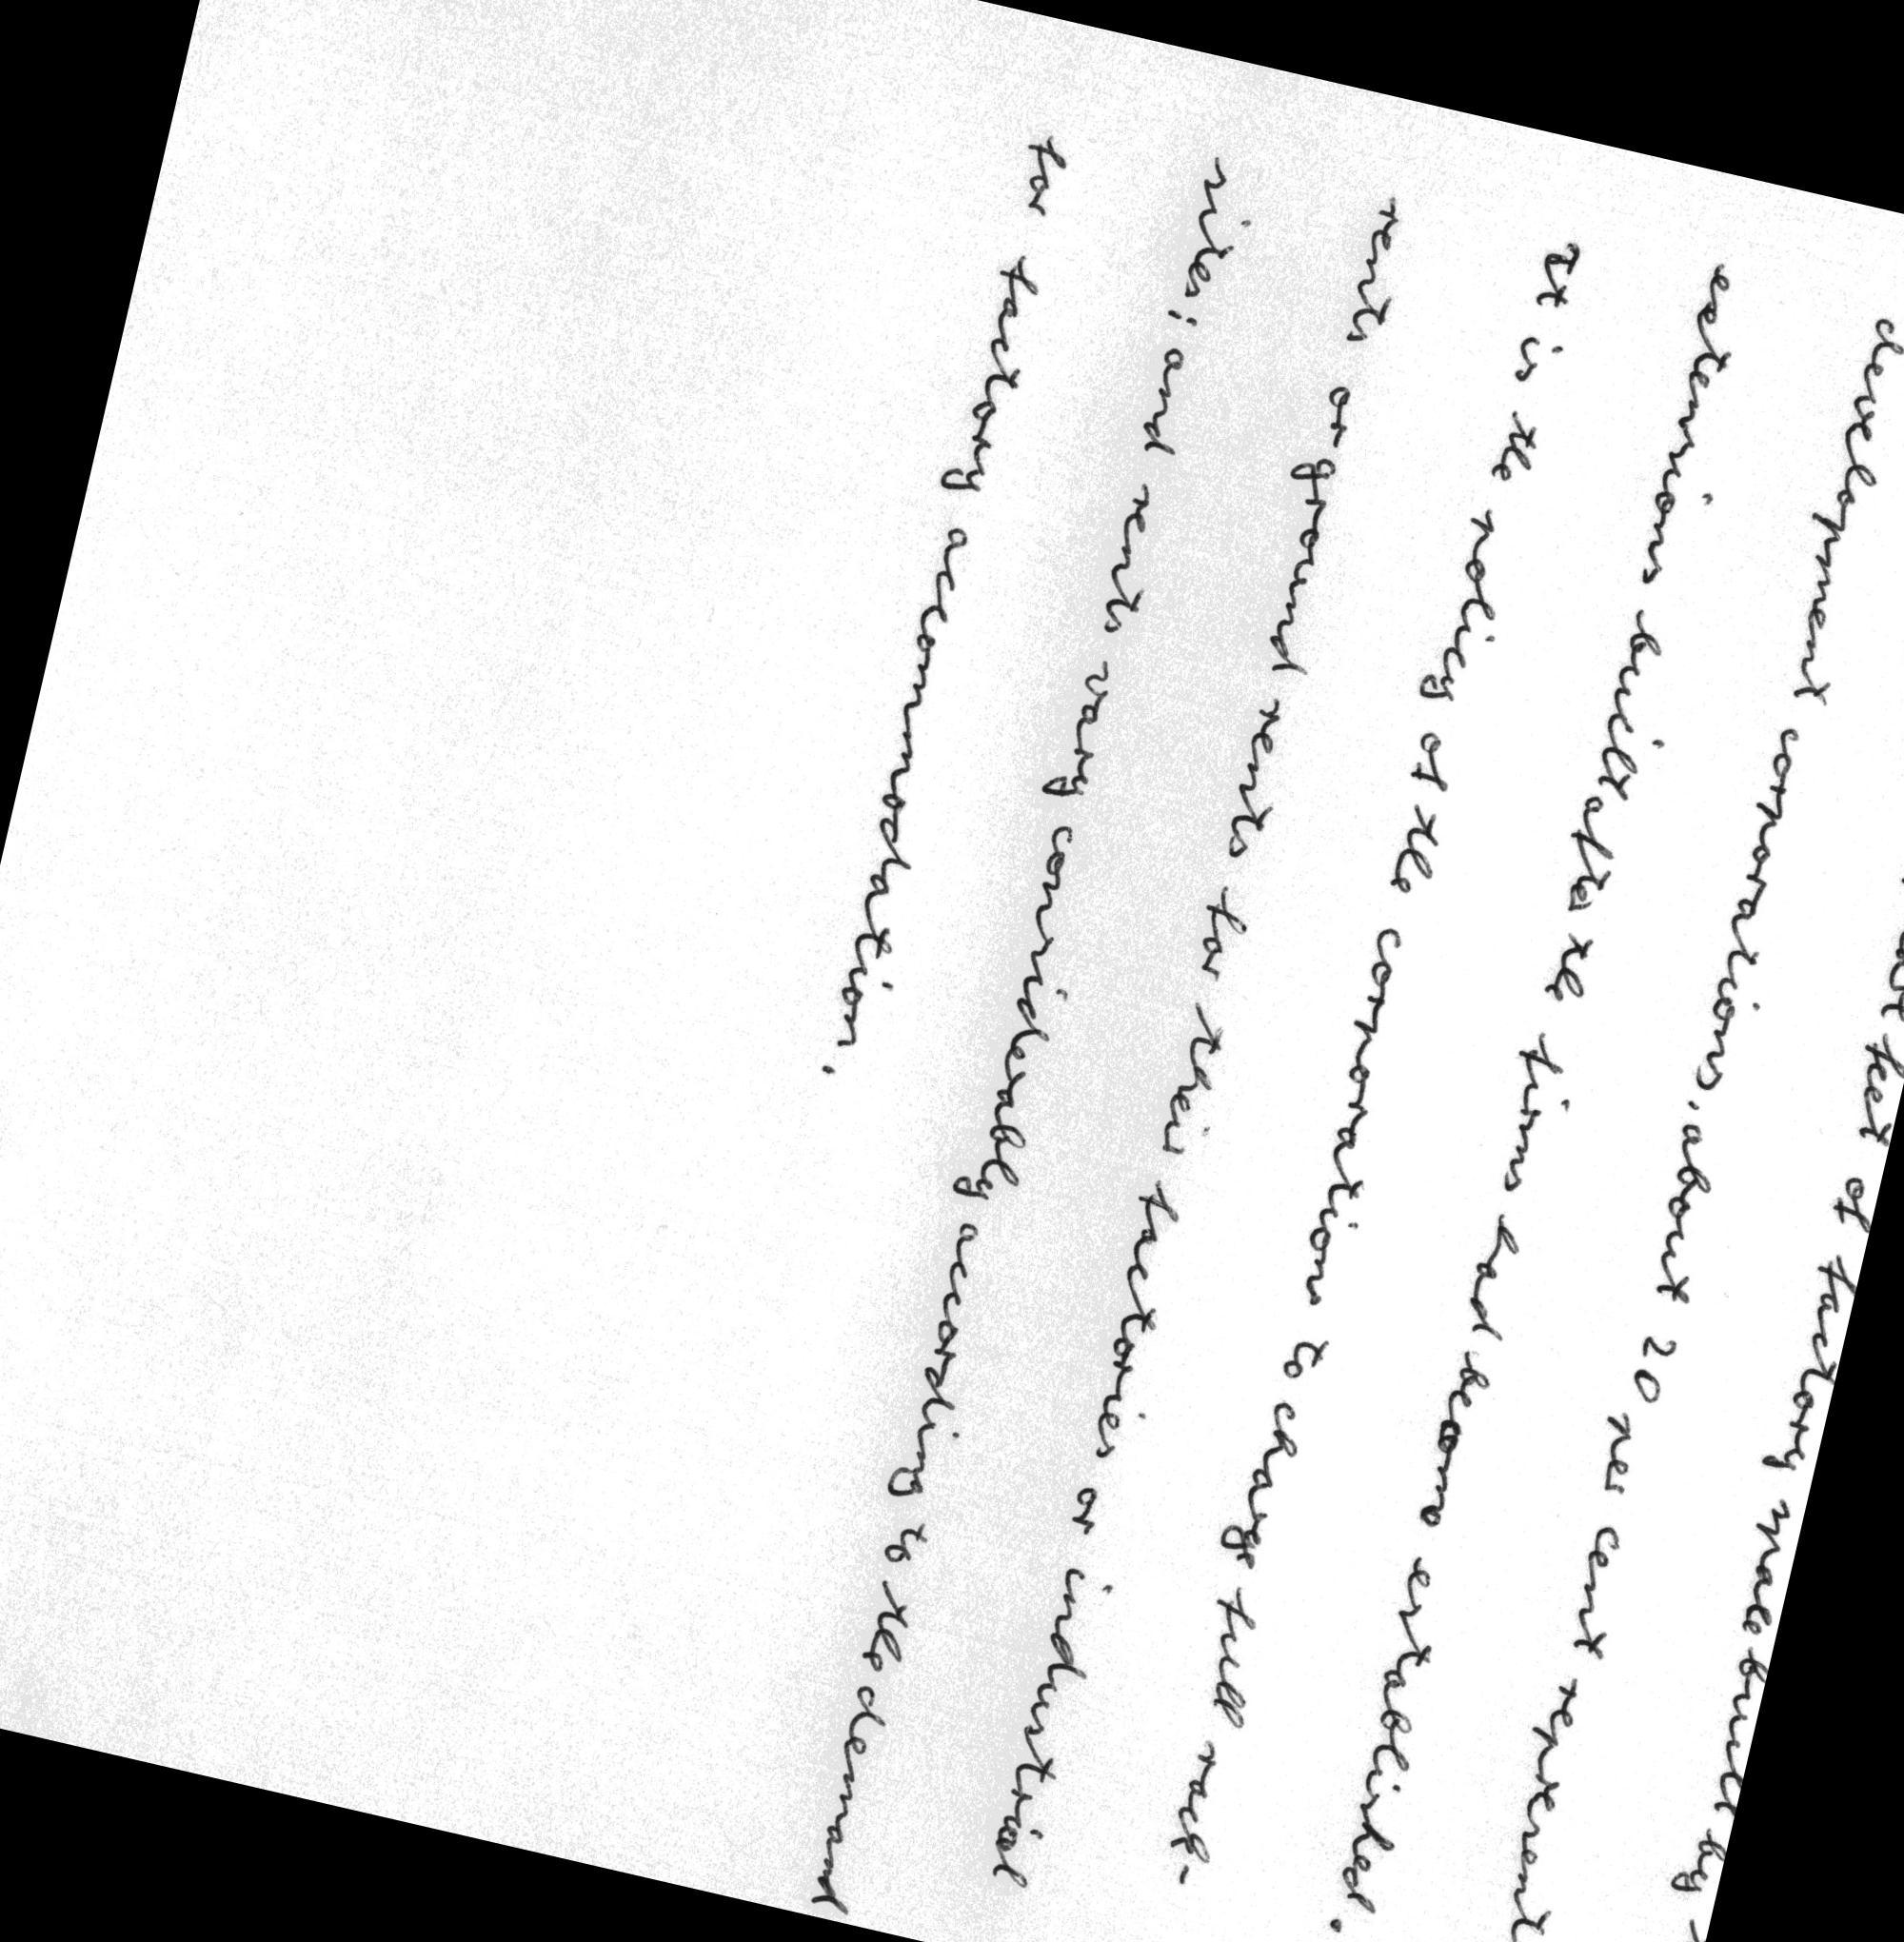 feet of factory space built by
development corporations, about 20 per cent represent
extensions built after the firms had become established.
It is the policy of the corporations to charge full rack-
rents or ground rents for their factories or industrial
sites; and rents vary considerably according to the demand
for factory accommodation.